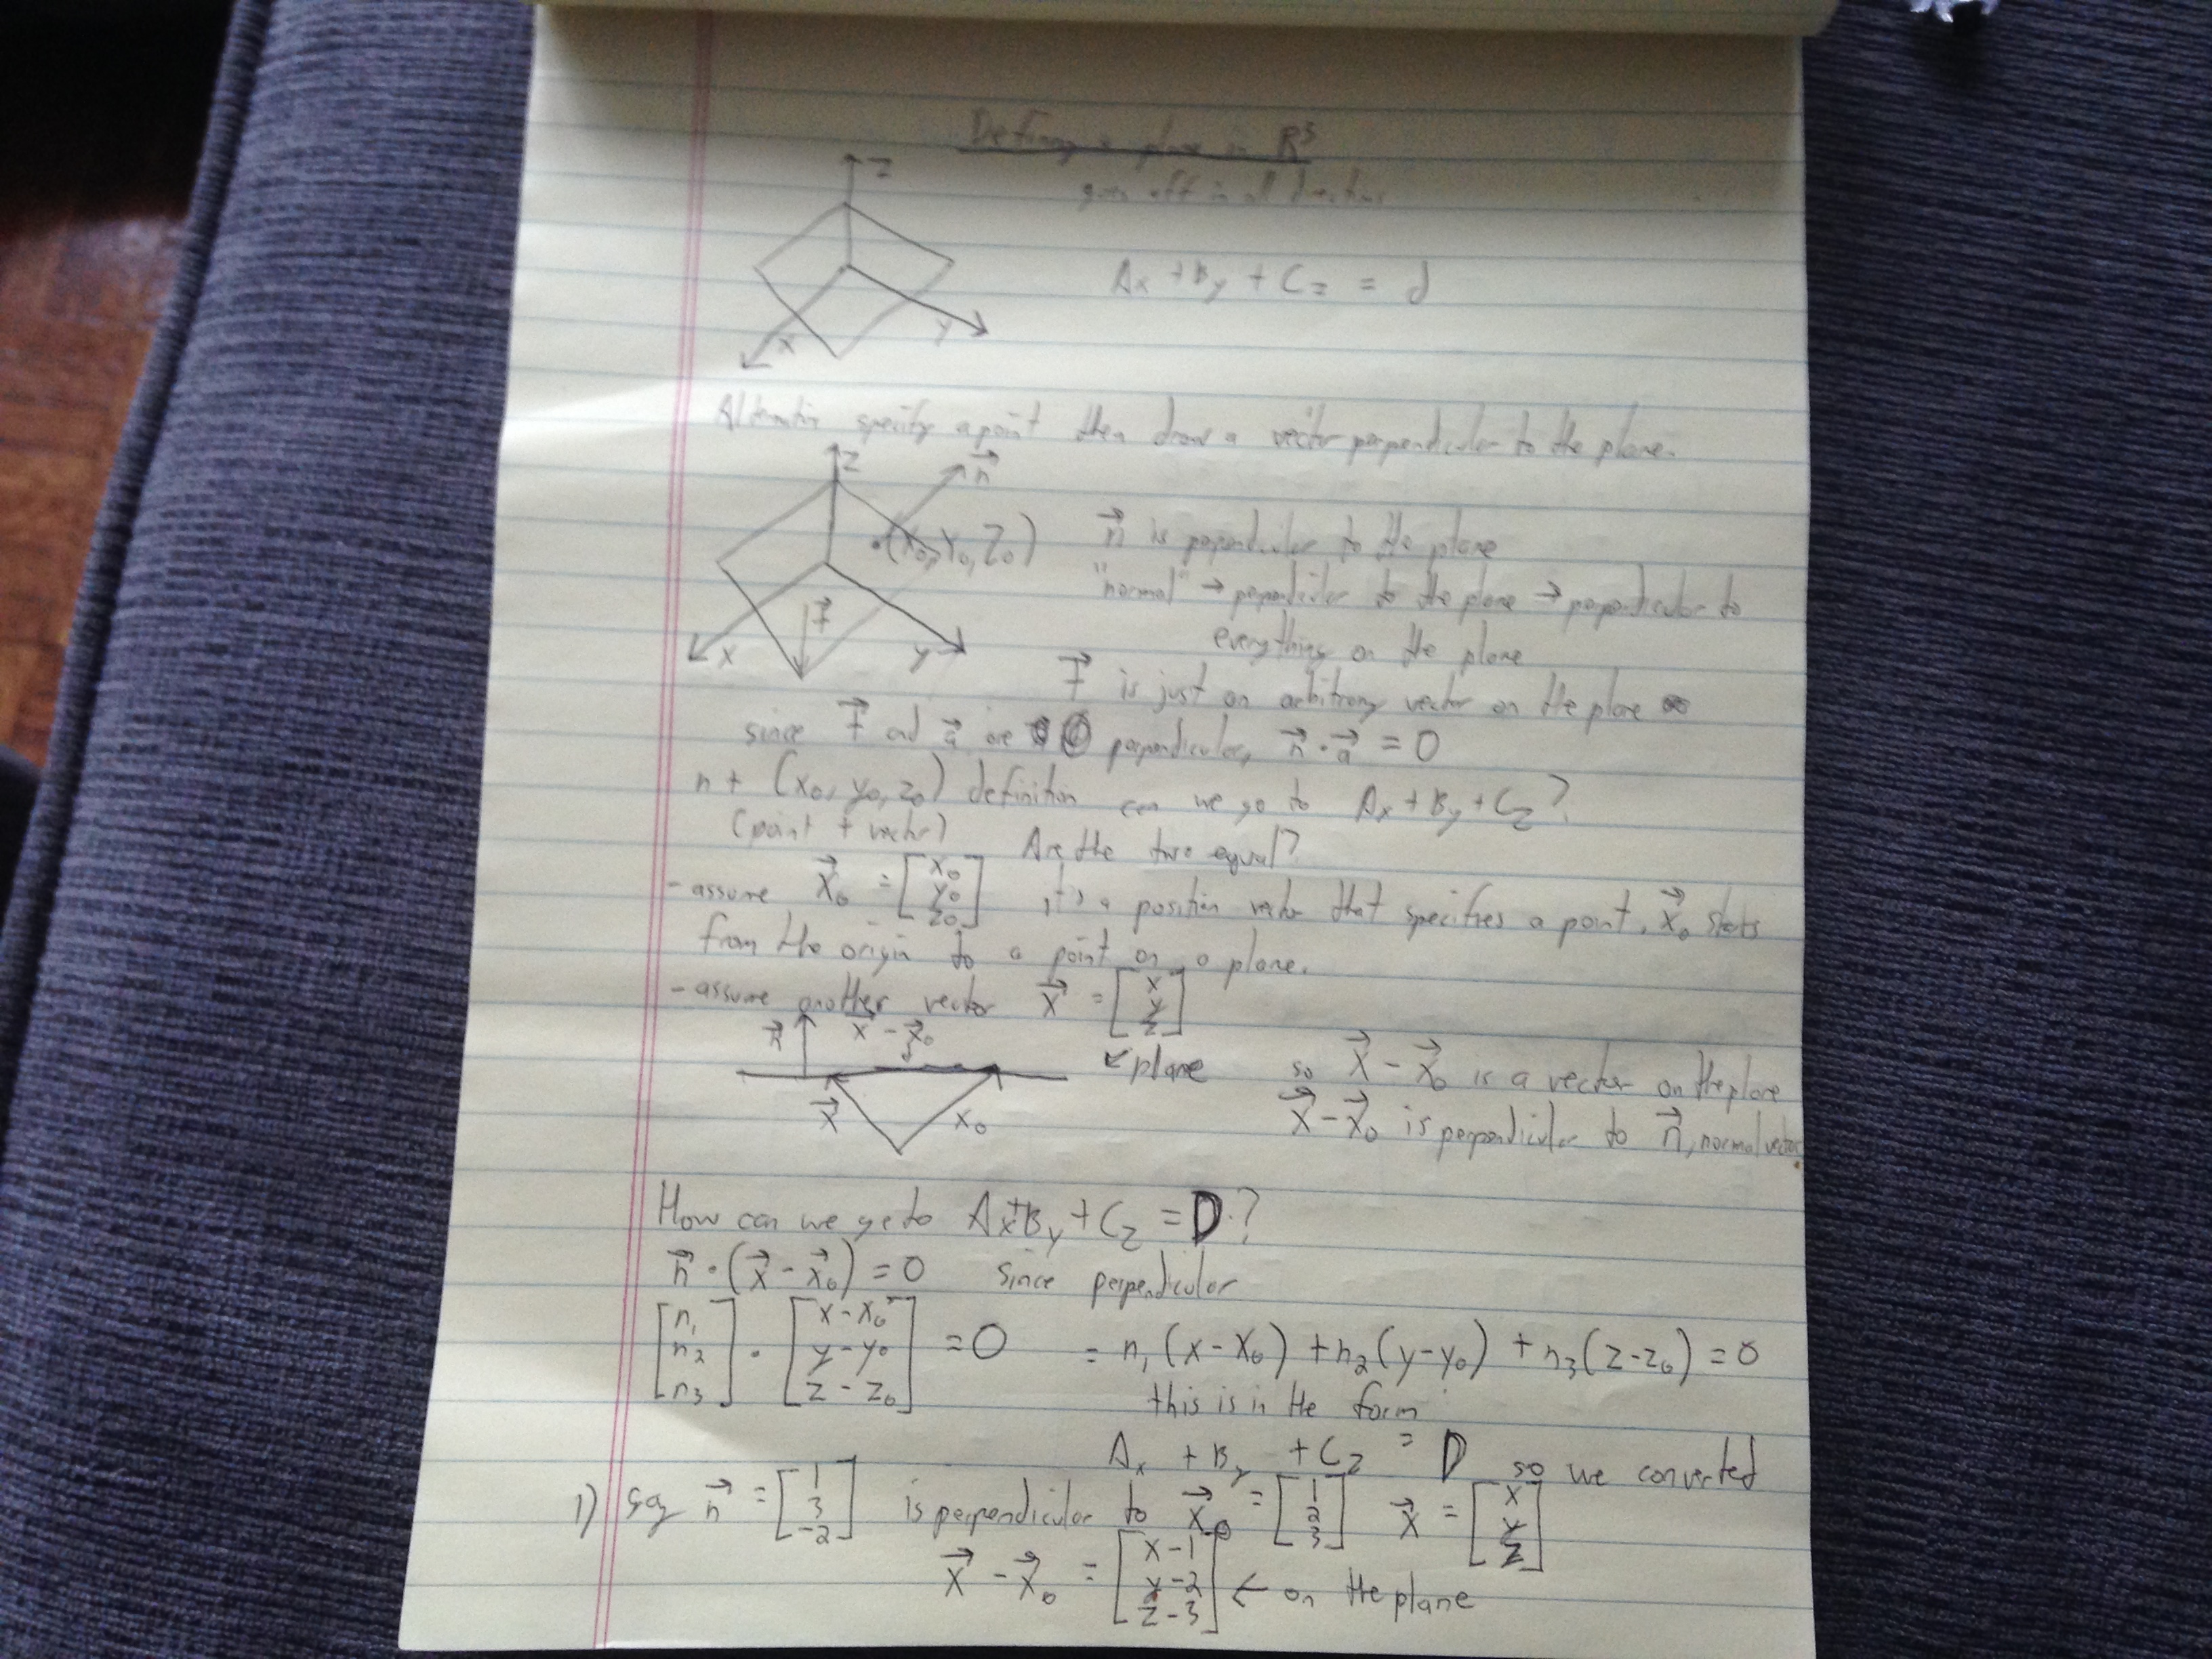 Defining a plane in R³
Z
x
y
Ax + By + Cz = d
Alternative specify a point then draw a vector perpendicular to the plane.
Z
n⃗
(x₀, y₀, z₀)
x
y
n⃗ is perpendicular to the plane
"normal" → perpendicular to the plane → perpendicular to
everything on the plane
is just an arbitrary vector on the plane
since and a⃗ are perpendicular, n⃗ · a⃗ = 0
n + (x₀, y₀, z₀) definition can we go to Ax + By + Cz?
(point + vector) Are the two equal?
- assume x⃗₀ = [x₀ y₀ z₀] it's a position vector that specifies a point, x⃗₀ starts
from the origin to a point on a plane.
- assume another vector x⃗ = [x y z]
n⃗
x⃗ - x⃗₀
← plane
x⃗
x₀
so x⃗ - x⃗₀ is a vector on the plane
x⃗ - x⃗₀ is perpendicular to n⃗, normal vector
How can we go to Ax + By + Cz = D?
n⃗ · (x⃗ - x⃗₀) = 0 since perpendicular
[n₁ n₂ n₃] · [x - x₀ y - y₀ z - z₀] = 0 = n₁(x - x₀) + n₂(y - y₀) + n₃(z - z₀) = 0
this is in the form
Ax + By + Cz = D so we converted
1) say n⃗ = [1 3 -2] is perpendicular to x⃗₀ = [1 2 3] x⃗ = [x y z]
x⃗ - x⃗₀ = [x - 1 y - 2 z - 3] ← on the plane